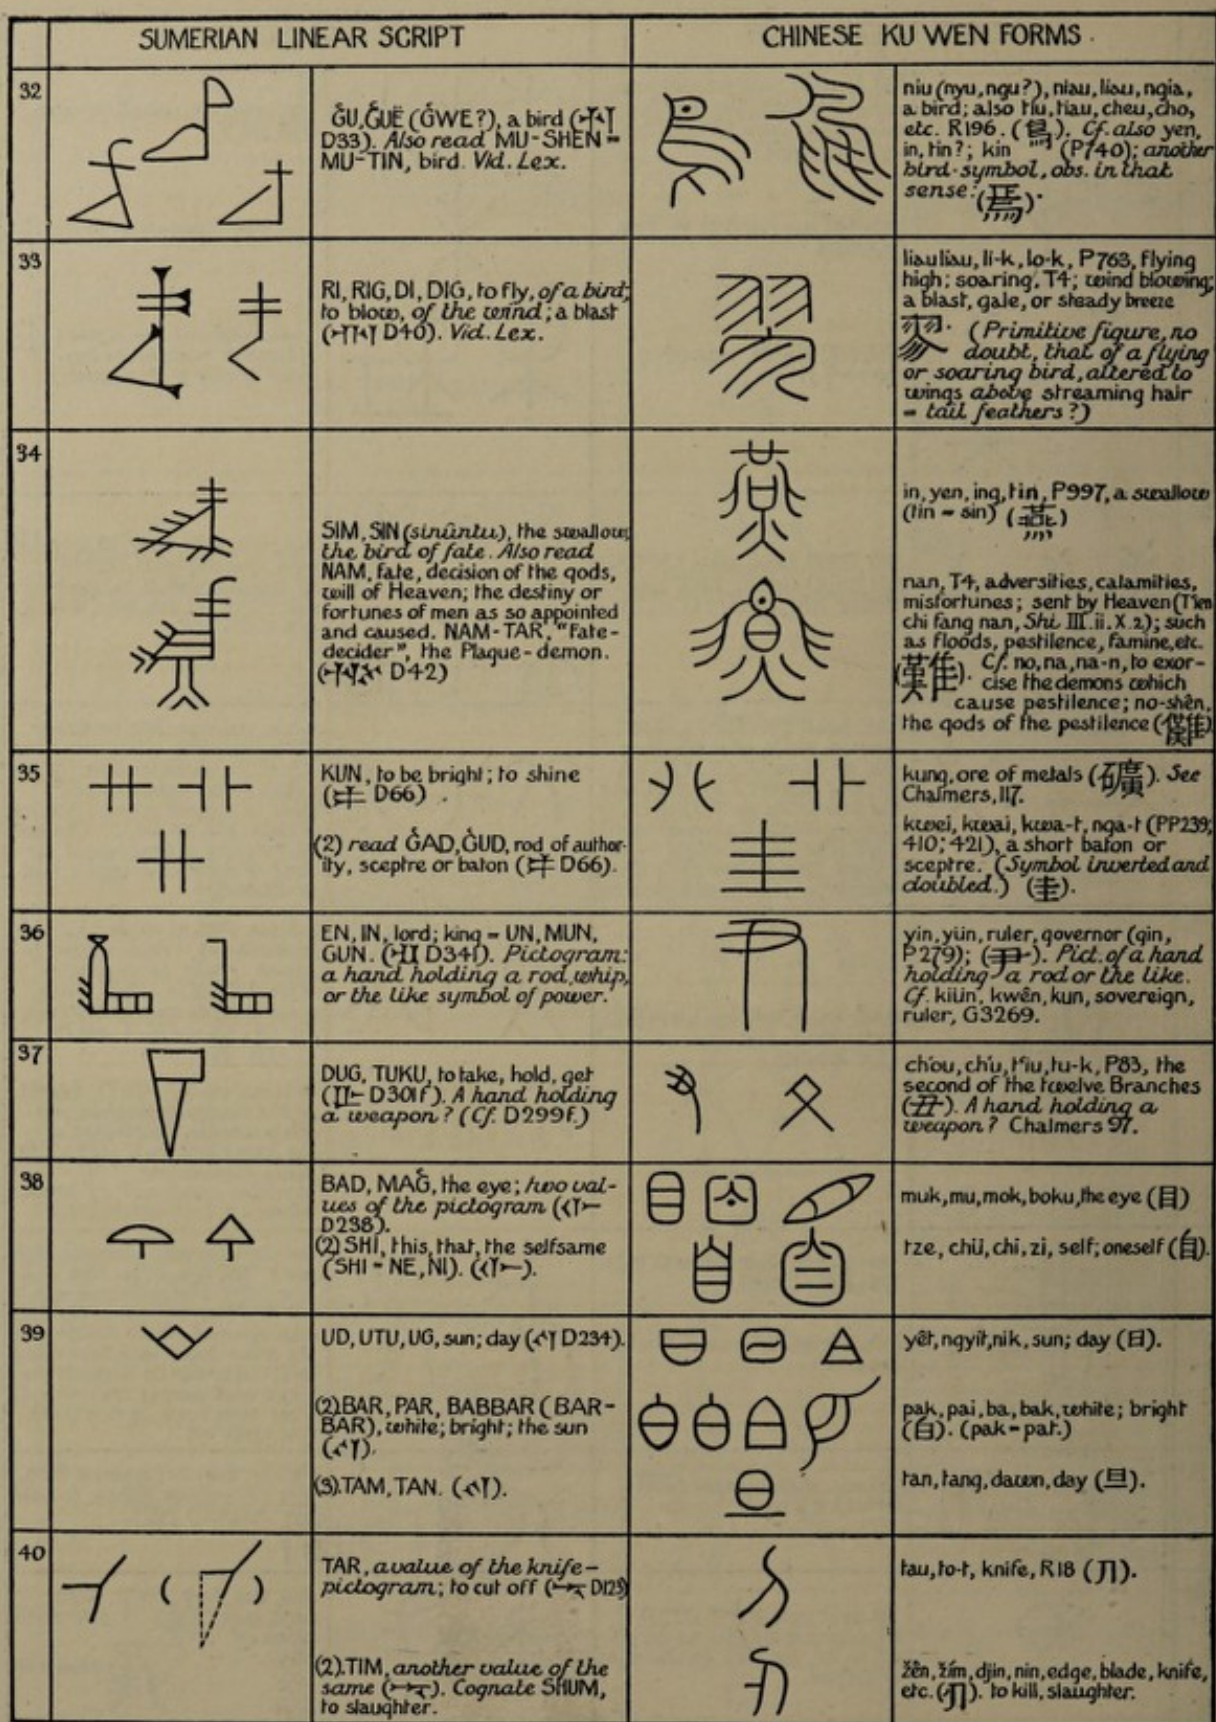 SUMERIAN LINEAR SCRIPT
CHINESE KU WEN FORMS.
32
ĞU, ĞUË (ĞWE?), a bird (
D33). Also read MU-SHEN =
MU-TIN, bird. Vid. Lex.
niu (nyu, ngu?), niau, liau, ngia,
a bird; also tiu, tiau, cheu, cho,
etc. R196. (鳥). Cf. also yen,
in, tin?; kin (P740); another
bird-symbol, obs. in that
sense: (焉).
33
RI, RIG, DI, DIG, to fly, of a bird;
to blow, of the wind; a blast
( D40). Vid. Lex.
liauliau, li-k, lo-k, P763, flying
high; soaring, T4; wind blowing;
a blast, gale, or steady breeze
翏. (Primitive figure, no
doubt, that of a flying
or soaring bird, altered to
wings above streaming hair
= tail feathers?)
34
SIM, SIN (sinûntu), the swallow,
the bird of fate. Also read
NAM, fate, decision of the gods,
will of Heaven; the destiny or
fortunes of men as so appointed
and caused. NAM-TAR, "Fate-
decider", the Plague-demon.
( D42)
in, yen, ing, tin, P997, a swallow
(tin = sin) (燕)
nan, T4, adversities, calamities,
misfortunes; sent by Heaven (T'ien
chi fang nan, Shi III. ii. X. 2); such
as floods, pestilence, famine, etc.
(難). Cf. no, na, na-n, to exor-
cise the demons which
cause pestilence; no-shên,
the gods of the pestilence (儺)
35
KUN, to be bright; to shine
( D66).
(2) read ĞAD, ĞUD, rod of author-
ity, sceptre or baton ( D66).
kung, ore of metals (礦). See
Chalmers, 117.
kwei, kwai, kwa-t, nga-t (PP239;
410; 421), a short baton or
sceptre. (Symbol inverted and
doubled.) (圭).
36
EN, IN, lord; king = UN, MUN,
GUN. ( D341). Pictogram:
a hand holding a rod, whip,
or the like symbol of power.
yin, yün, ruler, governor (gin,
P279); (尹). Pict. of a hand
holding a rod or the like.
Cf. kiün, kwên, kun, sovereign,
ruler, G3269.
37
DUG, TUKU, to take, hold, get
( D301f). A hand holding
a weapon? (Cf. D299f.)
ch'ou, ch'u, t'iu, tu-k, P83, the
second of the twelve Branches
(丑). A hand holding a
weapon? Chalmers 97.
38
BAD, MAĞ, the eye; two val-
ues of the pictogram (
D238).
(2) SHI, this, that, the selfsame
(SHI = NE, NI). ( ).
muk, mu, mok, boku, the eye (目)
tze, chü, chi, zi, self; oneself (自).
39
UD, UTU, UG, sun; day ( D234).
(2) BAR, PAR, BABBAR (BAR-
BAR), white; bright; the sun
( ).
(3). TAM, TAN. ( ).
yêt, ngyit, nik, sun; day (日).
pak, pai, ba, bak, white; bright
(白). (pak = pat.)
tan, tang, dawn, day (旦).
40
TAR, a value of the knife-
pictogram; to cut off ( D12)
(2). TIM, another value of the
same ( ). Cognate SHUM,
to slaughter.
tau, to-t, knife, R18 (刀).
žên, žím, djin, nin, edge, blade, knife,
etc. (刃). to kill, slaughter.